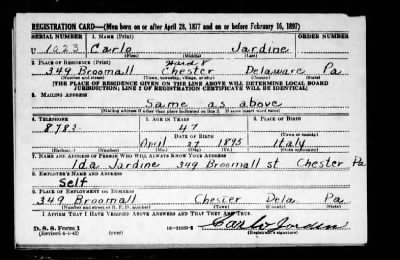 REGISTRATION CARD—(Men born on or after April 28, 1877 and on or before February 16, 1897)
SERIAL NUMBER 1. NAME (Print) ORDER NUMBER
U 1023 Carlo Jardine
(First) (Middle) (Last)
2. PLACE OF RESIDENCE (Print) Ward 8
349 Broomall Chester Delaware Pa
(Number and street) (Town, township, village, or city) (County) (State)
[THE PLACE OF RESIDENCE GIVEN ON THE LINE ABOVE WILL DETERMINE LOCAL BOARD
JURISDICTION; LINE 2 OF REGISTRATION CERTIFICATE WILL BE IDENTICAL]
3. MAILING ADDRESS
Same as above
[Mailing address if other than place indicated on line 2. If same insert word same]
4. TELEPHONE 5. AGE IN YEARS 6. PLACE OF BIRTH
8783 47
DATE OF BIRTH
April 27 1895 Italy
(Exchange) (Number) (Mo.) (Day) (Yr.) (State or country)
7. NAME AND ADDRESS OF PERSON WHO WILL ALWAYS KNOW YOUR ADDRESS
Ida Jardine 349 Broomall st Chester Pa
8. EMPLOYER'S NAME AND ADDRESS
Self
9. PLACE OF EMPLOYMENT OR BUSINESS
349 Broomall Chester Dela Pa
(Number and street or R. F. D. number) (Town) (County) (State)
I AFFIRM THAT I HAVE VERIFIED ABOVE ANSWERS AND THAT THEY ARE TRUE.
D. S. S. Form 1
(Revised 4-1-42) (over) 16—21630-2 (Registrant's signature)